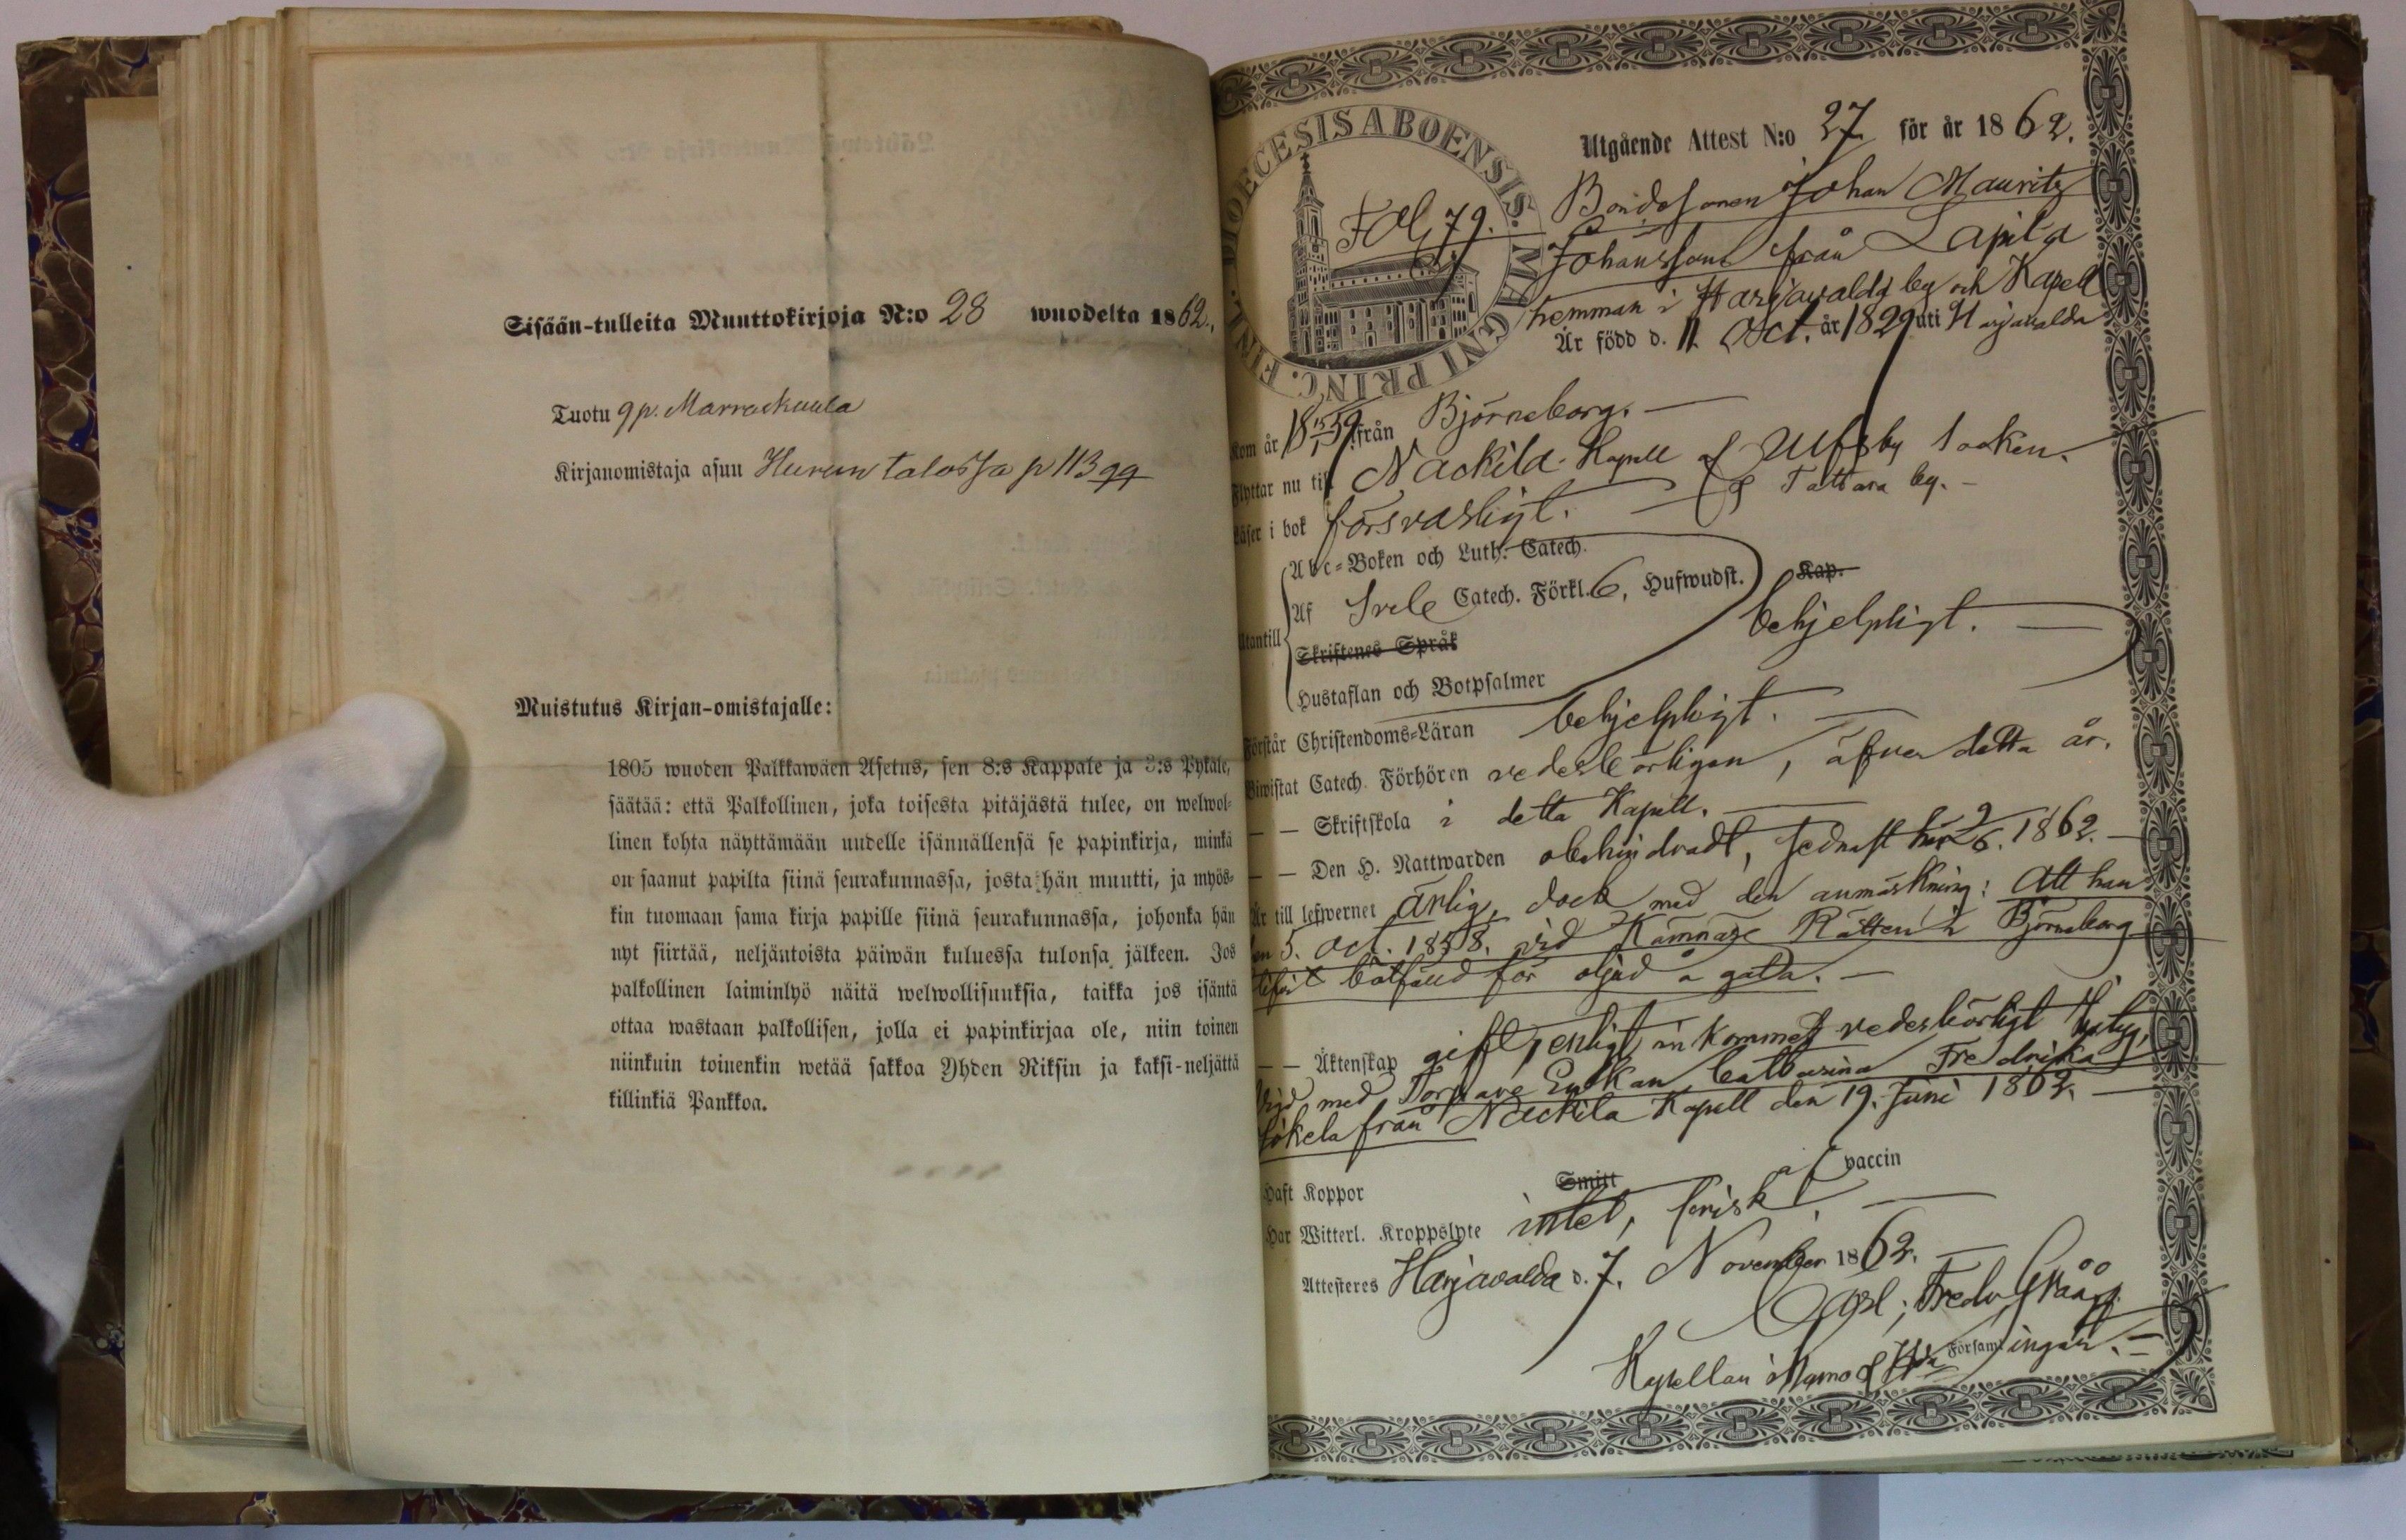 Sisään-tulleita Muuttokirjoja N:o 28 wuodelta 1862.
Tuotu 9 p. Marraskuula
Kirjanomistaja asuu talossa p 113
Muistutus Kirjan-omistajalle:
1805 wuoden Palkkawäen Asetus, sen 8:s Kappale ja 3:s Pykäle,
säätää: että Palkollinen, joka toisesta pitäjästä tulee, on welwol-
linen kohta näyttämään uudelle isännällensä se papinkirja, minkä
on saanut papilta siinä seurakunnassa, josta hän muutti, ja myös-
kin tuomaan sama kirja papille siinä seurakunnassa, johonka hän
nyt siirtää, neljäntoista päiwän kuluessa tulonsa jälkeen. Jos
palkollinen laiminlyö näitä welwollisuuksia, taikka jos isäntä
ottaa wastaan palkollisen, jolla ei papinkirjaa ole, niin toinen
niinkuin toinenkin wetää sakkoa Yhden Riksin ja kaksi-neljättä
killinkiä Pankkoa.
DIOECESIS ABOENSIS. MAGNI PRINC. FINL.
Fol. 79.
Utgående Attest N:o 27 för år 1862.
Bondesonen Johan Mauritz
Johansson från Lapila
hemman i Harjavalda by och Kapell
Är född d. 11 Oct. år 1829 uti Harjavalda
Kom år 1859 från Björneborg.
Flyttar nu till Nackila Kapell af Ulfsby Socken.
Tattara by.
Läser i bok försvarligt.
Abc-Boken och Luth. Catech.
Af Sveb. Catech. Förkl. 6, Hufwudst. Kap.
Utantill
behjelpligt.
Skriftenes Språk
Hustaflan och Botpsalmer
Förstår Christendoms-Läran behjelpligt.
Biwistat Catech. Förhören vederbörligen, äfven detta år.
— — Skriftskola i detta Kapell.
— — Den H. Nattwarden obehindradt, sednast här 9/6. 1862.
Är till lefwernet ärlig, dock med den anmärkning: Att han
den 5. Oct. 1858. vid Kämnärs Rätten i Björneborg
blifvit bötfäld för oljud å gata.
— — Äktenskap gift, enligt inkommet vederbörligt betyg,
vigd med Torpare Enkan Catharina Fredrika
från Nackila Kapell den 19. Juni 1862.
Haft Koppor Smitt af vaccin
Har Witterl. Kroppslyte intet, frisk.
Attesteras Harjavalda d. 7. November 1862.
Carl Fredr.
Kapellan i Församlingar.